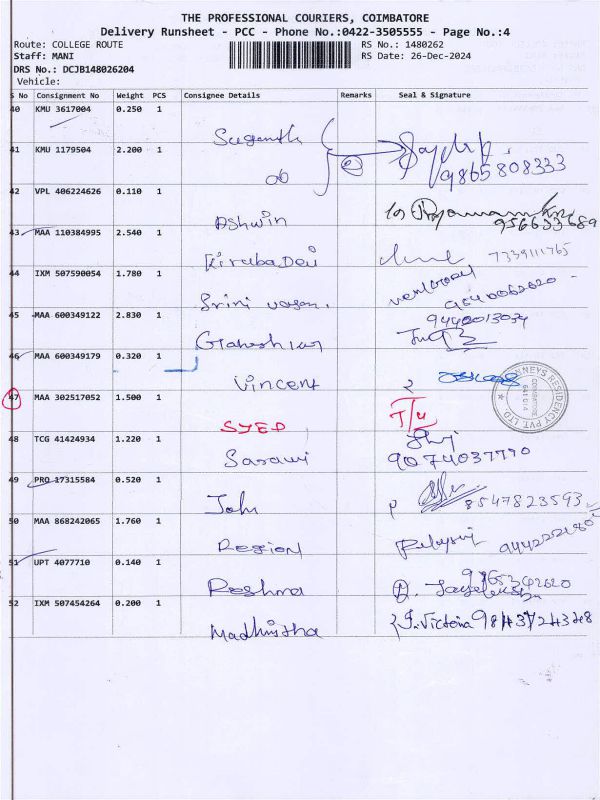 THE PROFESSIONAL COURIERS, COIMBATORE
Delivery Runsheet - PCC - Phone No.:0422-3505555 - Page No.:4
Route: COLLEGE ROUTE RS No.: 1480262
Staff: MANI RS Date: 26-Dec-2024
DRS No.: DCJB148026204
Vehicle:
S No Consignment No Weight PCS Consignee Details Remarks Seal & Signature
40 KMU 3617004 0.250 1
Suganth
41 KMU 1179504 2.200 1
do 9865808333
42 VPL 406224626 0.110 1
Ashwin 956633689
43 MAA 110384995 2.540 1
KirubaDevi 7339111765
44 IXM 507590054 1.780 1
Srini vasan.
45 MAA 600349122 2.830 1 9440013034
46 MAA 600349179 0.320 1
Vincent
47 MAA 302517052 1.500 1
SYED T/U
48 TCG 41424934 1.220 1
9074037770
49 PRO 17315584 0.520 1
John 8547823593
50 MAA 868242065 1.760 1
Region
51 UPT 4077710 0.140 1
Reshma
52 IXM 507454264 0.200 1
Madhmitha J. Victoria